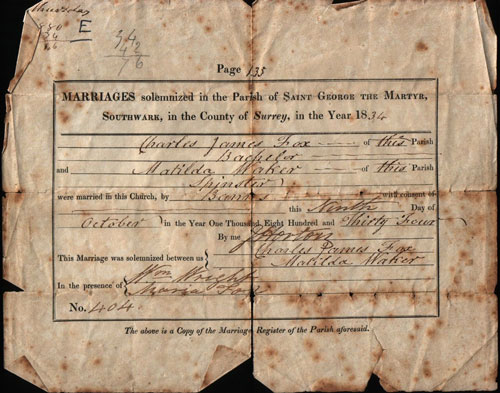 Thursday
E
34
42
76
Page 135
MARRIAGES solemnized in the Parish of SAINT GEORGE THE MARTYR,
SOUTHWARK, in the County of Surrey, in the Year 1834
Charles James Fox of this Parish
Bachelor
and Matilda Waker of this Parish
Spinster
were married in this Church, by Banns with consent of
this Ninth Day of
October in the Year One Thousand, Eight Hundred and Thirty Four
By me J Horton
This Marriage was solemnized between us { Charles James Fox
Matilda Waker
In the presence of { Wm Wright
Maria Fox
No. 404
The above is a Copy of the Marriage Register of the Parish aforesaid.